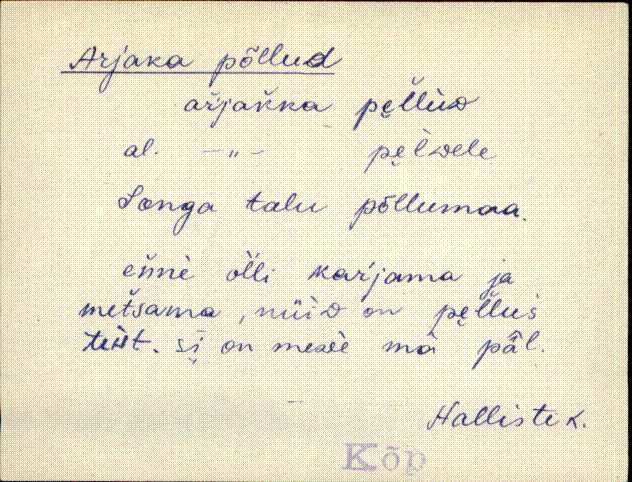 Arjaka põllud
ar̆jakka pe̮l̆lùᴅ
al. —„— pe̮l̀ᴅele
Songa talu põllumaa.
en̆nè ol̆li kar̆jama ja
met̆sama, nüi̮ᴅ on pe̮l̆lus
teit. si̮ on meiè mà päl.
Halliste k.
Kõp